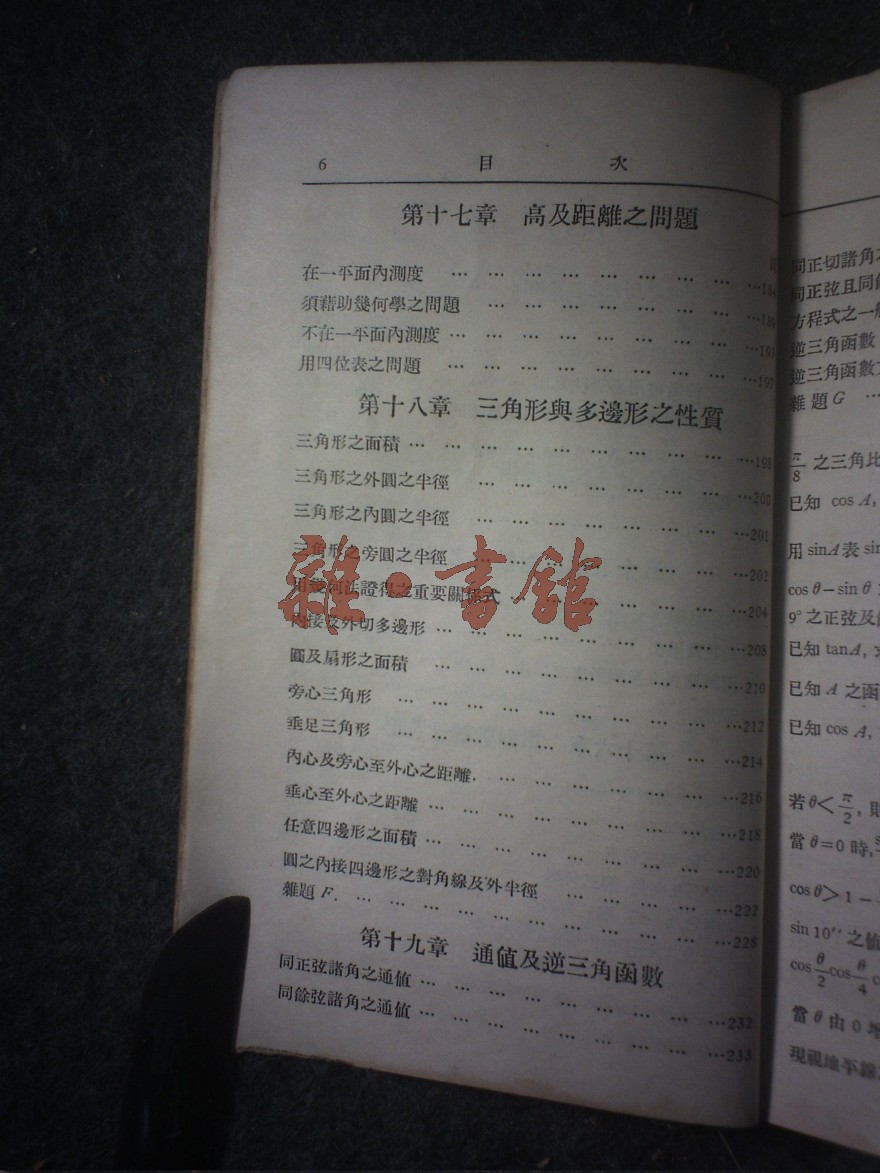 6 目 次
第十七章 高及距離之問題
在一平面內測度 … … … … … … … … …184
須藉助幾何學之問題 … … … … … … … …189
不在一平面內測度 … … … … … … … … …193
用四位表之問題 … … … … … … … … …197
第十八章 三角形與多邊形之性質
三角形之面積 … … … … … … … … … …198
三角形之外圓之半徑 … … … … … … … …200
三角形之內圓之半徑 … … … … … … … …201
三角形之旁圓之半徑 … … … … … … … …202
用幾何法證得之重要關係式 … … … … … … …204
內接及外切多邊形 … … … … … … … … …208
圓及扇形之面積 … … … … … … … … …210
旁心三角形 … … … … … … … … … …212
垂足三角形 … … … … … … … … … …214
內心及旁心至外心之距離. … … … … … … …216
垂心至外心之距離 … … … … … … … … …218
任意四邊形之面積 … … … … … … … … …220
圓之內接四邊形之對角線及外半徑 … … … … … …222
雜題 F. … … … … … … … … … … …228
第十九章 通值及逆三角函數
同正弦諸角之通值 … … … … … … … … …232
同餘弦諸角之通值 … … … … … … … … …233
雜·書館
同正切諸角
同正弦且同
方程式之一
逆三角函數
逆三角函數
雜題G …
π/8 之三角比
已知 cos A,
用 sinA 表 sin
cos θ−sin θ
9° 之正弦及
已知 tanA,
已知 A 之函
已知 cos A,
若 θ< π/2,
當 θ=0 時,
cos θ> 1 −
sin 10″ 之值
cos θ/2 cos θ/4
當 θ 由 0
現視地平線